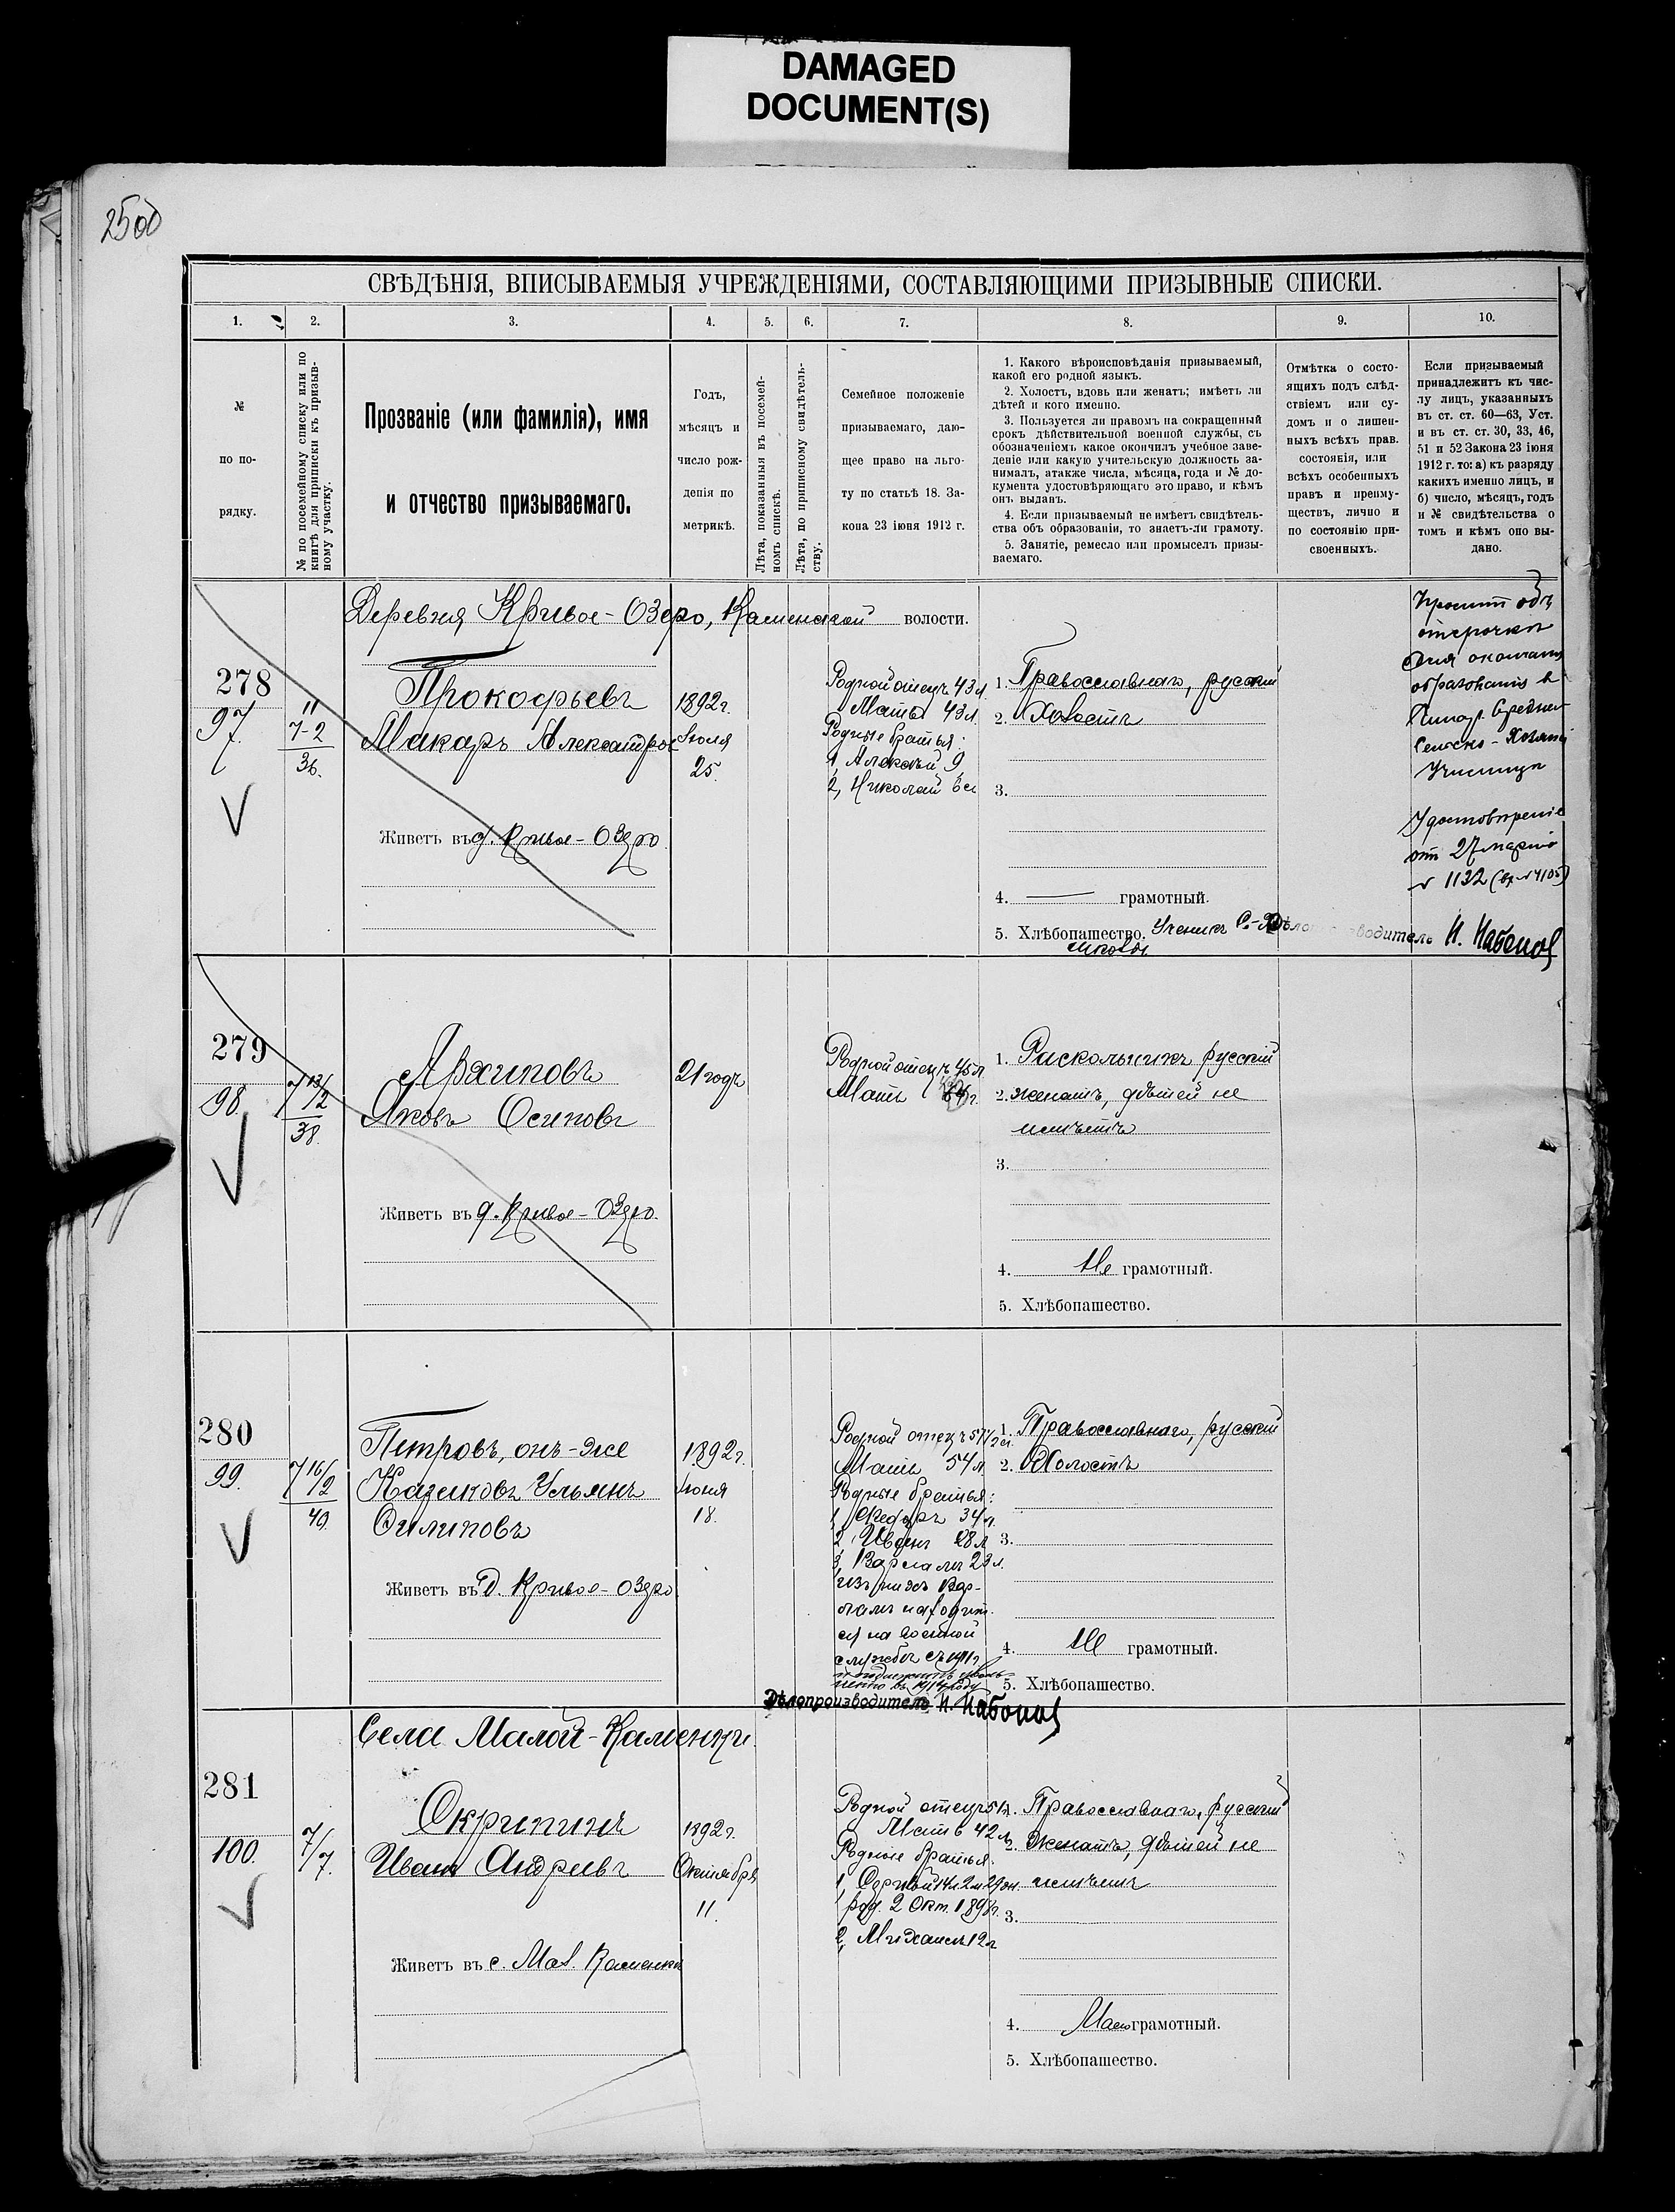 DAMAGED
DOCUMENT(S)
СВѢДѢНІЯ, ВПИСЫВАЕМЫЯ УЧРЕЖДЕНІЯМИ, СОСТАВЛЯЮЩИМИ ПРИЗЫВНЫЕ СПИСКИ.
1.
2.
3.
4.
5.
6.
7.
8.
9.
10.
№
по по-
рядку.
№ по посемейному списку или по
книгѣ для приписки къ призыв-
ному участку.
Прозваніе (или фамилія), имя
и отчество призываемаго.
Годъ,
мѣсяцъ и
число рож-
денія по
метрикѣ.
Лѣта, показанныя въ посемей-
номъ спискѣ.
Лѣта, по приписному свидѣтель-
ству.
Семейное положеніе
призываемаго, даю-
щее право на льго-
ту по статьѣ 18. За-
кона 23 іюня 1912 г.
1. Какого вѣроисповѣданія призываемый,
какой его родной языкъ.
2. Холостъ, вдовъ или женатъ; имѣетъ ли
дѣтей и кого именно.
3. Пользуется ли правомъ на сокращенный
срокъ дѣйствительной военной службы, съ
обозначеніемъ какое окончилъ учебное заве-
деніе или какую учительскую должность за-
нималъ, атакже числа, мѣсяца, года и № до-
кумента удостовѣряющаго это право, и кѣмъ
онъ выданъ.
4. Если призываемый не имѣетъ свидѣтель-
ства объ образованіи, то знаетъ-ли грамоту.
5. Занятіе, ремесло или промыселъ призы-
ваемаго.
Отмѣтка о состо-
ящихъ подъ слѣд-
ствіемъ или су-
домъ и о лишен-
ныхъ всѣхъ прав.
состоянія, или
всѣхъ особенныхъ
правъ и преиму-
ществъ, лично и
по состоянію при-
своенныхъ.
Если призываемый
принадлежитъ къ чис-
лу лицъ, указанныхъ
въ ст. ст. 60—63, Уст.
и въ ст. ст. 30, 33, 46,
51 и 52 Закона 23 іюня
1912 г. то: а) къ разряду
какихъ именно лицъ, и
б) число, мѣсяцъ, годъ
и № свидѣтельства о
томъ и кѣмъ оно вы-
дано.
Деревня Кривое-Озеро, Каменской волости.
278
97.
11
7-2
36.
Прокофьевъ
Макаръ Александровъ
Живетъ въ д. Кривое-Озеро
1892г.
Іюля
25.
Родной отецъ 43л.
Мать 43л.
Родные братья:
1, Алексѣй 9
2, Николай
1. Православнаго, русскій
2. Холостъ
3.
4. — грамотный.
5. Хлѣбопашество. Ученикъ С.-Х.
школы.
отсрочки
для окончанія
образованія въ
Средне-
Сельско-Хозяй
Училищѣ
Удостовѣреніе
отъ 27 марта
№ 1132
279
98.
7 13/2
38.
Архиповъ
Яковъ Осиповъ
Живетъ въ д. Кривое-Озеро.
21 годъ
Родной отецъ 45л.
Мать
1. Раскольникъ русскій
2. женатъ, дѣтей не
имѣетъ
3.
4. Не грамотный.
5. Хлѣбопашество.
280
99.
7 16/2
40.
Петровъ, онъ-же
Казаковъ Ульянъ
Филиповъ
Живетъ въ д. Кривое-Озеро
1892г.
Іюня
18.
Родной отецъ 57 1/2 л.
Мать 54л.
Родные братья:
1, Федоръ 34л.
2, Иванъ 28л.
3, Варламъ 23л.
изъ нихъ Вар-
ламъ находит-
ся на военной
службѣ съ 1911г
1. Православнаго, русскій
2. Холостъ
3.
4. Не грамотный.
5. Хлѣбопашество.
Дѣлопроизводитель
Села Малой-Каменки.
281
100.
7/7.
Скрипинъ
Иванъ Андреевъ
Живетъ въ с. Мал. Каменки
1892г.
Октября
11.
Родной отецъ 51л.
Мать 42л.
Родные братья:
1, Сергѣй 14л. 2м. 29дн.
род. 2 Окт. 1898г.
2, Михаилъ 12л
1. Православнаго, русскій
2. Женатъ, дѣтей не
имѣетъ
3.
4. Мало грамотный.
5. Хлѣбопашество.